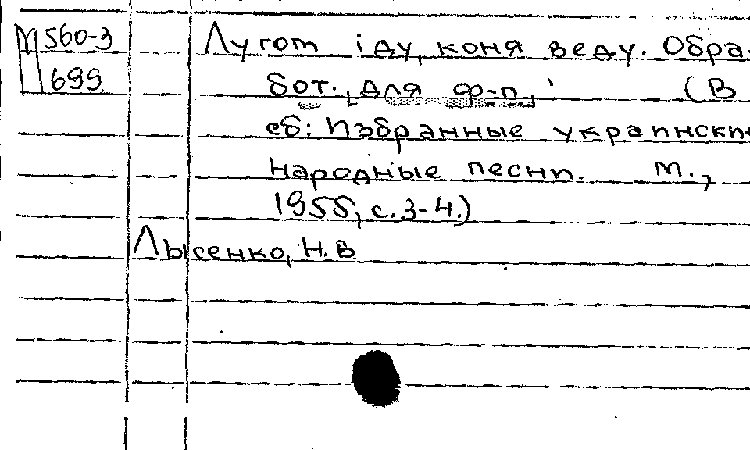 М 560-3
699
Лугом іду, коня веду. Обра-
бот. для ф-п. (В
сб: Избранные украински
народные песни. М.,
1955, с. 3-4.)
Лысенко, Н. В